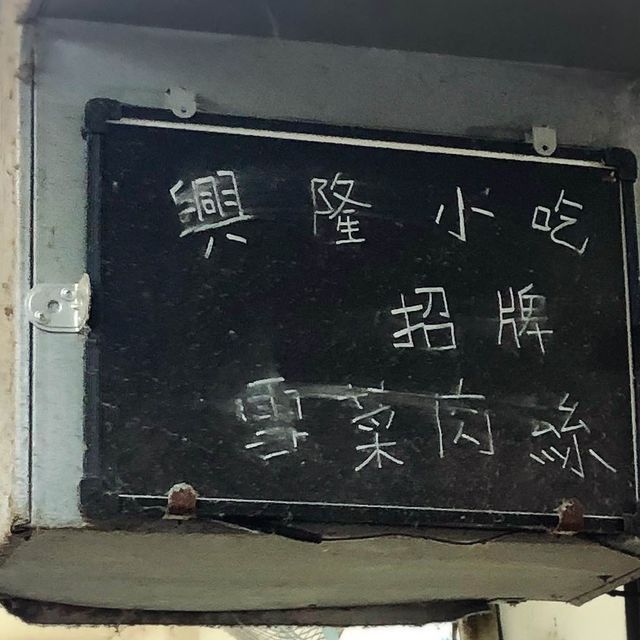 興隆小吃
招牌
雪菜肉絲